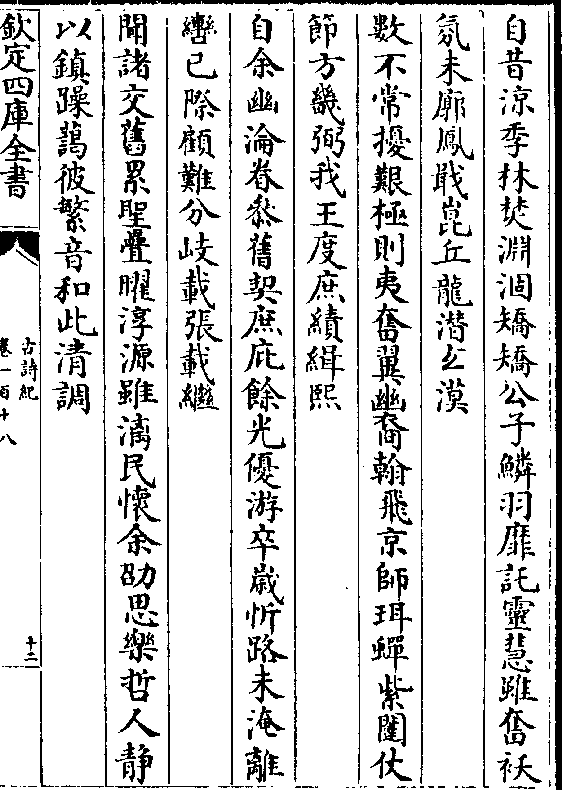 自昔涼季林焚淵涸矯矯公子鱗羽靡託靈慧雖奮袄
氛未廓鳳戢崑丘龍潛𤣥漠
數不常擾艱極則夷奮翼幽裔翰飛京師珥蟬紫闥仗
節方畿弼我王度庶績緝熙
自余幽淪眷參舊契庶庇餘光優游卒歲忻路未淹離
轡已際顧難分岐載張載繼
聞諸交舊累聖疊曜淳源雖漓民懷余劭思樂哲人静
以鎮躁藹彼繁音和此清調
欽定四庫全書
古詩紀
卷一百十八
十二